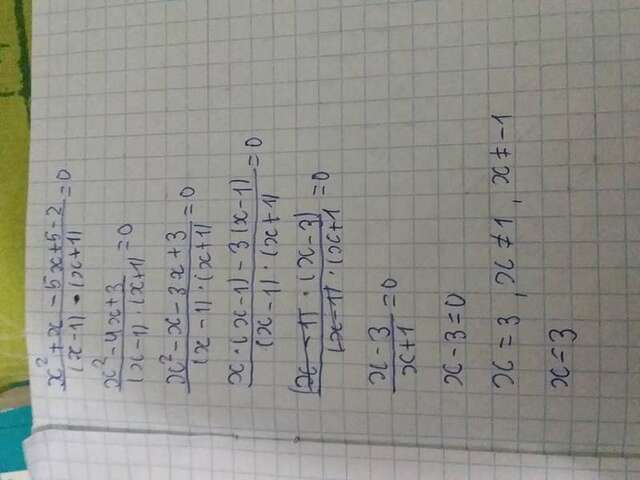 x² + x - 5x + 5 - 2 / (x-1) · (x+1) = 0
x² - 4x + 3 / (x-1) · (x+1) = 0
x² - x - 3x + 3 / (x-1) · (x+1) = 0
x · (x-1) - 3(x-1) / (x-1) · (x+1) = 0
(x-1) · (x-3) / (x-1) · (x+1 = 0
x-3 / x+1 = 0
x - 3 = 0
x = 3, x ≠ 1, x ≠ -1
x = 3